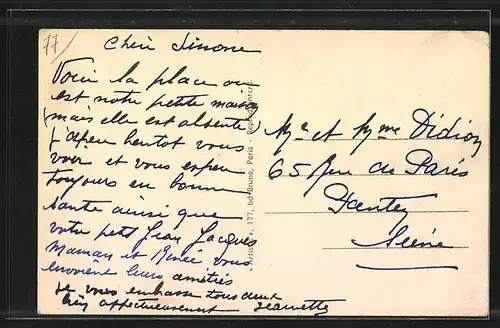 77
Chérie Simone
Voici la place ou
est notre petite maison
(mais elle est absente)
j'espere bientot vous
voir et vous espere
toujours en bonne
sante ainsi que
votre petit Jean Jacques
Maman et Renée vous
envoient leurs amitiés
je vous embrasse tous deux
bien affectueusement Jeannette
177, bd Brune, Paris -
Mr et Mme Didion
65 Rue de Paris
Seine